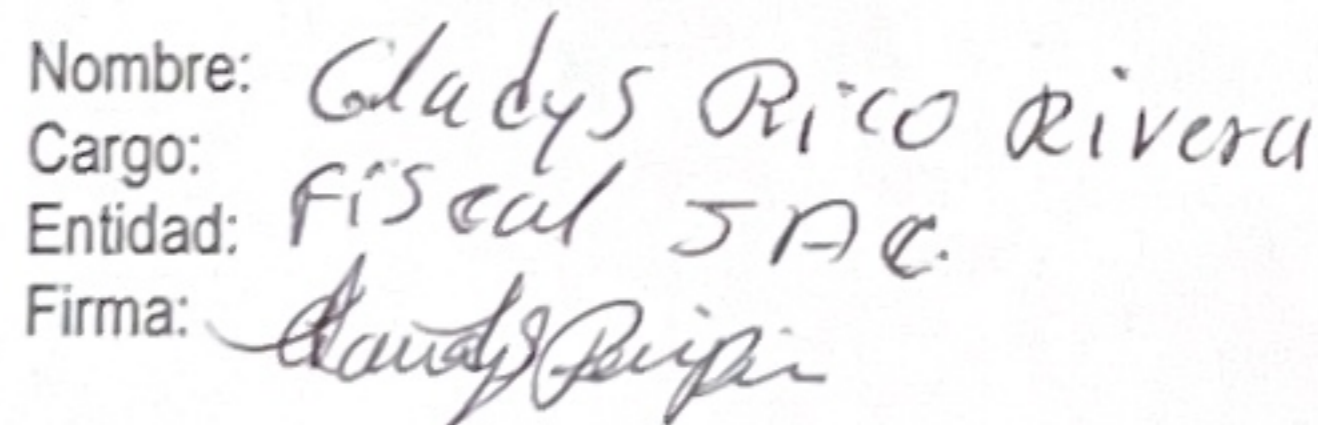 Nombre: Gladys Rico Rivera
Cargo:
Entidad: Fiscal JAC.
Firma: